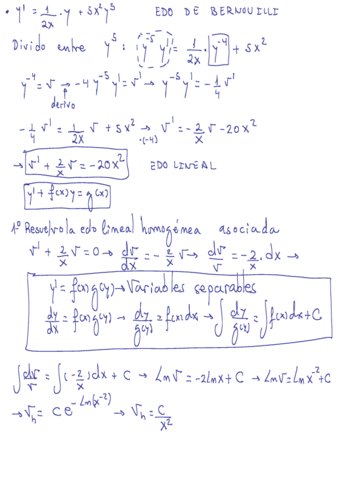 • y' = 1/2x · y + 5x²y⁵   EDO DE BERNOUILLI
Divido entre y⁵: y⁻⁵ y' = 1/2x · y⁻⁴ + 5x²
y⁻⁴ = v → -4y⁻⁵y' = v' → y⁻⁵y' = -1/4 v'
derivo
-1/4 v' = 1/2x v + 5x² → v' = -2/x v - 20x²
·(-4)
→ v' + 2/x v = -20x²   EDO LINEAL
y' + f(x)y = g(x)
1º Resuelvo la edo lineal homogénea asociada
v' + 2/x v = 0 → dv/dx = -2/x v → dv/v = -2/x · dx →
y' = f(x)g(y) → Variables separables
dy/dx = f(x)g(y) → dy/g(y) = f(x)dx → ∫ dy/g(y) = ∫ f(x)dx + C
∫ dv/v = ∫ (-2/x)dx + C → Ln v = -2Ln x + C → Ln v = Ln x⁻² + C
→ vₕ = C e^-Ln(x⁻²) → vₕ = C/x²